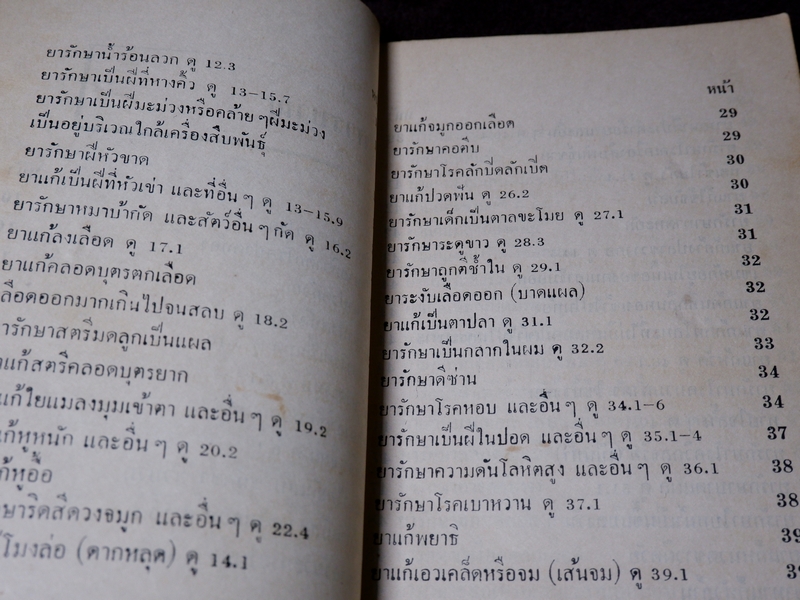 ยารักษาน้ำร้อนลวก ดู 12.3
ยารักษาเป็นฝีที่หางคิ้ว ดู 13-15.7
ยารักษาเป็นฝีมะม่วงหรือคล้ายๆฝีมะม่วง
เป็นอยู่บริเวณใกล้เครื่องสืบพันธุ์
ยารักษาฝีหัวขาด
ยาแก้เป็นฝีที่หัวเข่า และที่อื่นๆ ดู 13-15.9
ยารักษาหมาบ้ากัด และสัตว์อื่นๆกัด ดู 16.2
ยาแก้ลงเลือด ดู 17.1
ยาแก้คลอดบุตรตกเลือด
เลือดออกมากเกินไปจนสลบ ดู 18.2
ยารักษาสตรีมดลูกเป็นแผล
ยาแก้สตรีคลอดบุตรยาก
แก้ใยแมลงมุมเข้าตา และอื่นๆ ดู 19.2
แก้หูหนัก และอื่นๆ ดู 20.2
ก้หูอื้อ
ษาริดสีดวงจมูก และอื่นๆ ดู 22.4
โมงล่อ (ดากหลุด) ดู 14.1
หน้า
ยาแก้จมูกออกเลือด 29
ยารักษาคอตีบ 29
ยารักษาโรคลักปิดลักเปิด 30
ยาแก้ปวดฟัน ดู 26.2 30
ยารักษาเด็กเป็นตาลขะโมย ดู 27.1 31
ยารักษาระดูขาว ดู 28.3 31
ยารักษาถูกตีช้ำใน ดู 29.1 32
ยาระงับเลือดออก (บาดแผล) 32
ยาแก้เป็นตาปลา ดู 31.1 32
ยารักษาเป็นกลากในผม ดู 32.2 33
ยารักษาดีซ่าน 34
ยารักษาโรคหอบ และอื่นๆ ดู 34.1-6 34
ยารักษาเป็นฝีในปอด และอื่นๆ ดู 35.1-4 37
ยารักษาความดันโลหิตสูง และอื่นๆ ดู 36.1 38
ยารักษาโรคเบาหวาน ดู 37.1 38
ยาแก้พยาธิ 39
ยาแก้เอวเคล็ดหรือจม (เส้นจม) ดู 39.1